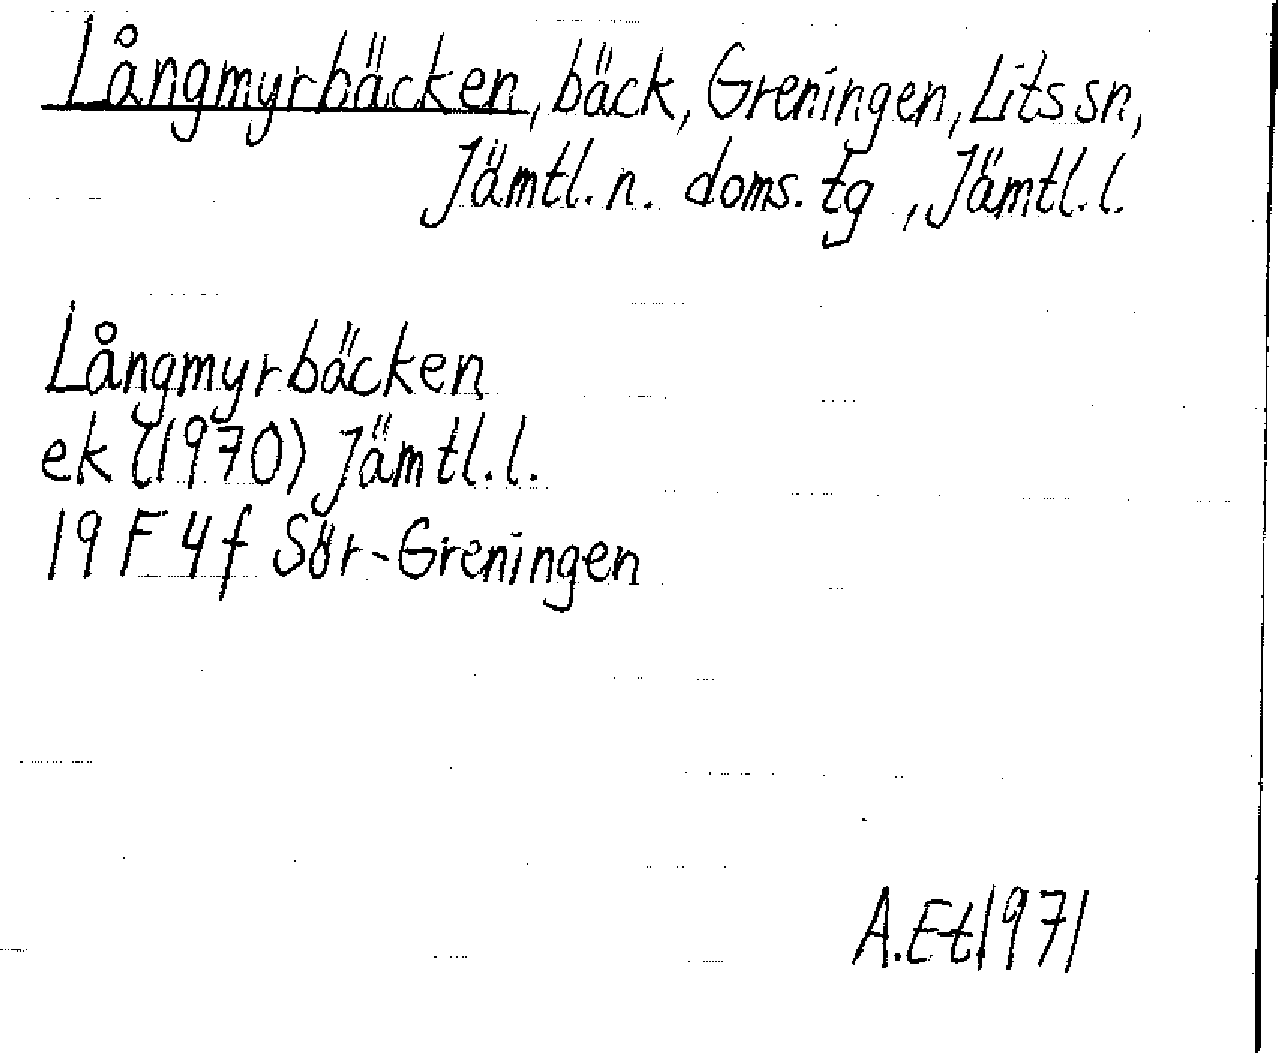 Långmyrbäcken, bäck, Greningen, Lits sn,
Jämtl. n. doms. tg, Jämtl. l.
Långmyrbäcken
ek (1970) Jämtl. l.
19 F 4 f Sör-Greningen
A. Et 1971